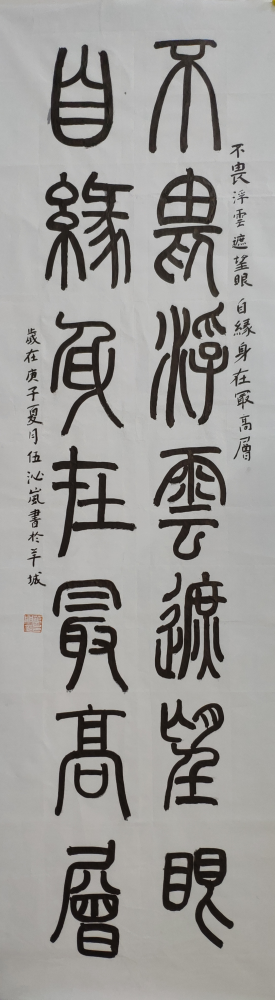 不畏浮雲遮望眼
自緣身在最高層
不畏浮雲遮望眼自緣身在冣高層
歲在庚子夏月伍沁嵐書於羊城